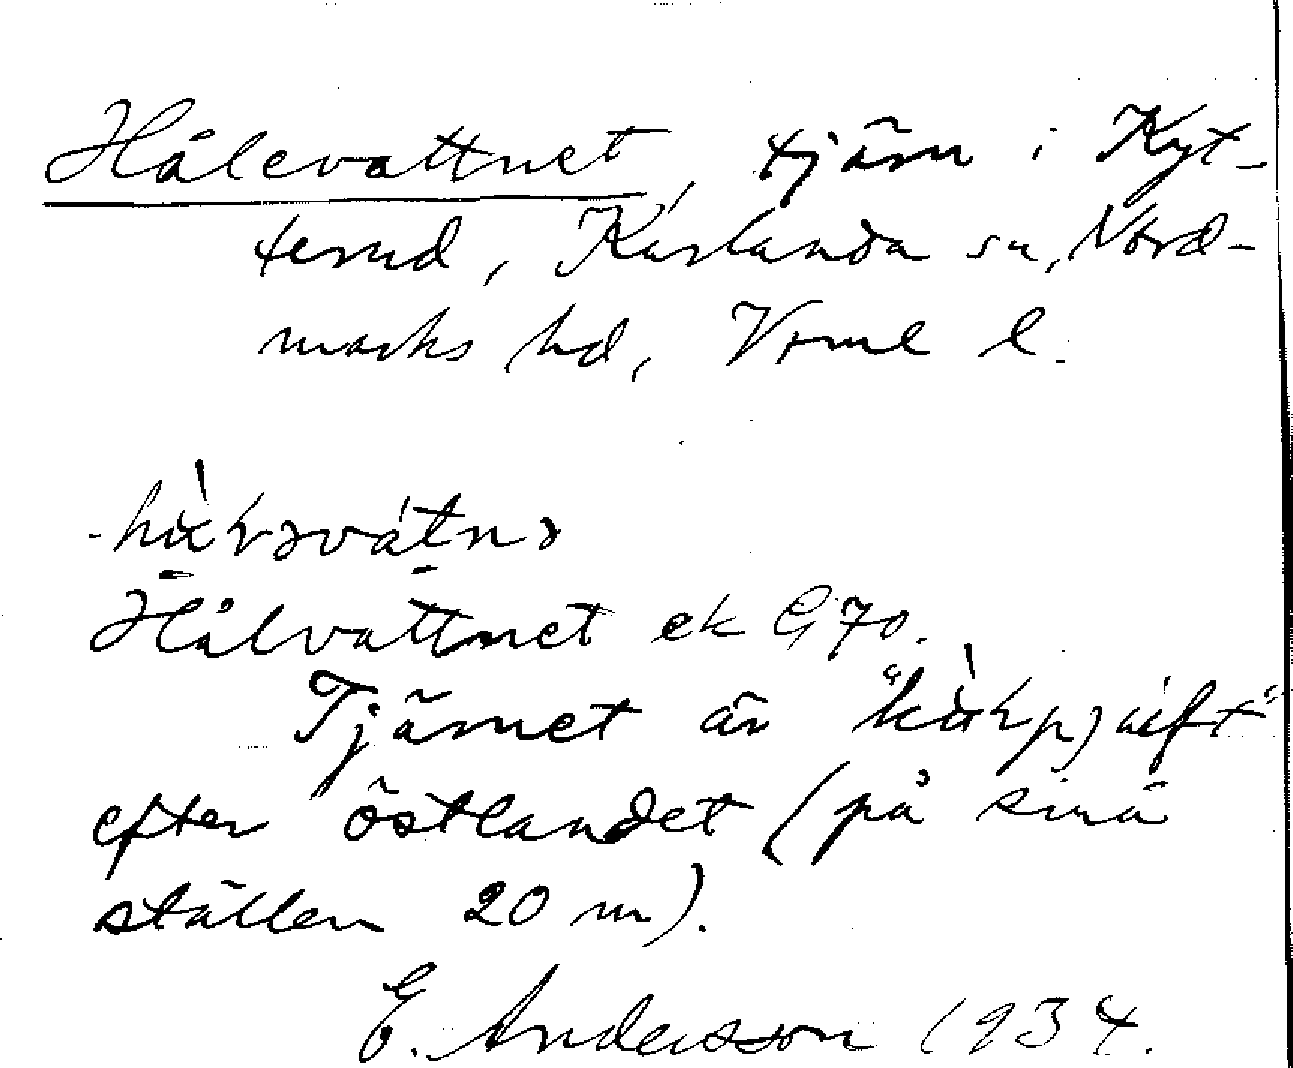 Hålevattnet, tjärn i Kyt-
terud, Karlanda sn, Nord-
marks hd, Vrml l.
Hålvattnet ek G 70.
Tjärnet är
efter östlandet (på sina
ställen 20 m).
E. Andersson 1934.